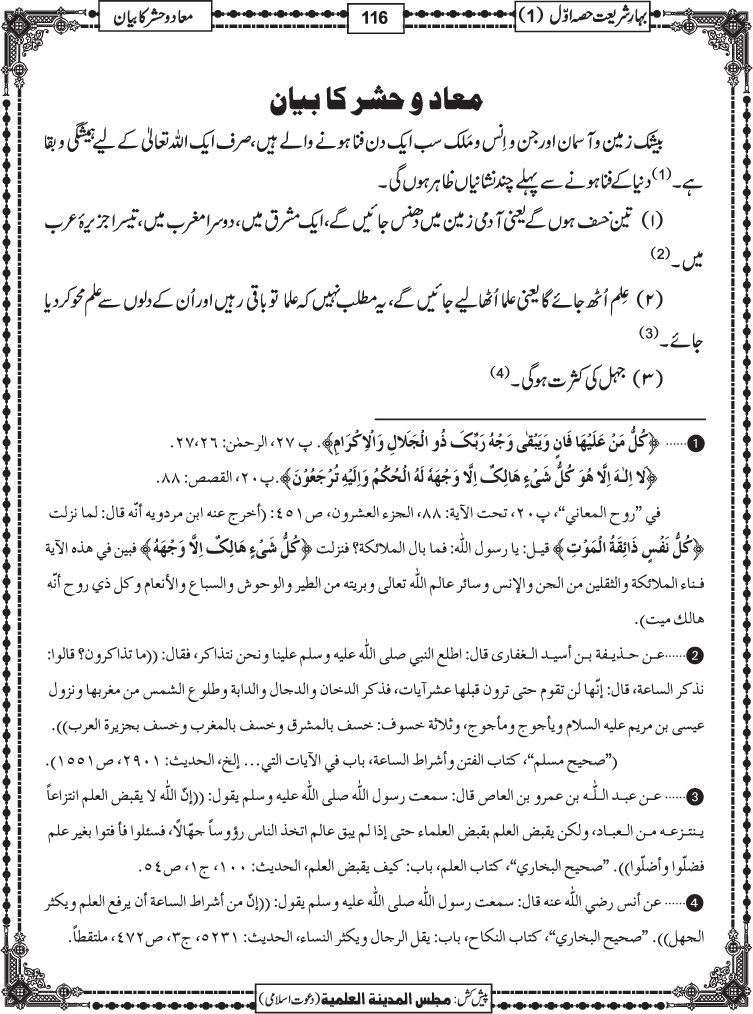 بہار شریعت حصہ اوّل (1)
116
معاد و حشر کا بیان
معاد و حشر کا بیان
بیشک زمین و آسمان اور جن و اِنس و مَلک سب ایک دن فنا ہونے والے ہیں، صرف ایک اللہ تعالیٰ کے لیے ہمیشگی و بقا
ہے۔(1) دنیا کے فنا ہونے سے پہلے چند نشانیاں ظاہر ہوں گی۔
(۱) تین خسف ہوں گے یعنی آدمی زمین میں دھنس جائیں گے، ایک مشرق میں، دوسرا مغرب میں، تیسرا جزیرۂ عرب
میں۔(2)
(۲) عِلم اُٹھ جائے گا یعنی علما اُٹھا لیے جائیں گے، یہ مطلب نہیں کہ علما تو باقی رہیں اور اُن کے دلوں سے علم محو کر دیا
جائے۔(3)
(۳) جہل کی کثرت ہوگی۔(4)
❶ ...... ﴿كُلُّ مَنْ عَلَيْهَا فَانٍ وَيَبْقٰى وَجْهُ رَبِّکَ ذُو الْجَلَالِ وَالْاِكْرَامِ﴾. پ ۲۷، الرحمٰن: ۲۶،۲۷.
﴿لَا اِلٰـهَ اِلَّا هُوَ كُلُّ شَىْءٍ هَالِکٌ اِلَّا وَجْهَهٗ لَهُ الْحُكْمُ وَاِلَيْهِ تُرْجَعُوْنَ﴾.پ۲۰، القصص: ۸۸.
في ”روح المعاني“، پ۲۰، تحت الآية: ۸۸، الجزء العشرون، ص٤٥١: (أخرج عنه ابن مردويه أنّه قال: لما نزلت
﴿كُلُّ نَفْسٍ ذَائِقَةُ الْمَوْتِ﴾ قيل: يا رسول الله: فما بال الملائكة؟ فنزلت ﴿كُلُّ شَىْءٍ هَالِکٌ اِلَّا وَجْهَهٗ﴾ فبين في هذه الآية
فناء الملائكة والثقلين من الجن والإنس وسائر عالم الله تعالى وبريته من الطير والوحوش والسباع والأنعام وكل ذي روح أنّه
هالك ميت).
❷ ......عـن حـذيـفة بـن أسيـد الـغفارى قال: اطلع النبي صلى الله عليه وسلم علينا ونحن نتذاكر، فقال: ((ما تذاكرون؟ قالوا:
نذكر الساعة، قال: إنّها لن تقوم حتى ترون قبلها عشرآيات، فذكر الدخان والدجال والدابة وطلوع الشمس من مغربها ونزول
عيسى بن مريم عليه السلام ويأجوج ومأجوج، وثلاثة خسوف: خسف بالمشرق وخسف بالمغرب وخسف بجزيرة العرب)).
(”صحيح مسلم“، كتاب الفتن وأشراط الساعة، باب في الآيات التي... إلخ، الحديث: ۲۹۰۱، ص١٥٥١).
❸ ...... عـن عبد الـلّـه بن عمرو بن العاص قال: سمعت رسول الله صلى الله عليه وسلم يقول: ((إنّ الله لا يقبض العلم انتزاعاً
يـنتـزعـه مـن الـعبـاد، ولكن يقبض العلم بقبض العلماء حتى إذا لم يبق عالم اتخذ الناس رؤوساً جهّالًا، فسئلوا فأفتوا بغير علم
فضلّوا وأضلّوا)). ”صحيح البخاري“، كتاب العلم، باب: كيف يقبض العلم، الحديث: ۱۰۰، ج۱، ص٥٤.
❹ ...... عن أنس رضي الله عنه قال: سمعت رسول الله صلى الله عليه وسلم يقول: ((إنّ من أشراط الساعة أن يرفع العلم ويكثر
الجهل)). ”صحيح البخاري“، كتاب النكاح، باب: يقل الرجال ويكثر النساء، الحديث: ٥٢٣١، ج۳، ص٤٧٢، ملتقطاً.
پیش کش: مجلس المدينة العلمية (دعوت اسلامی)